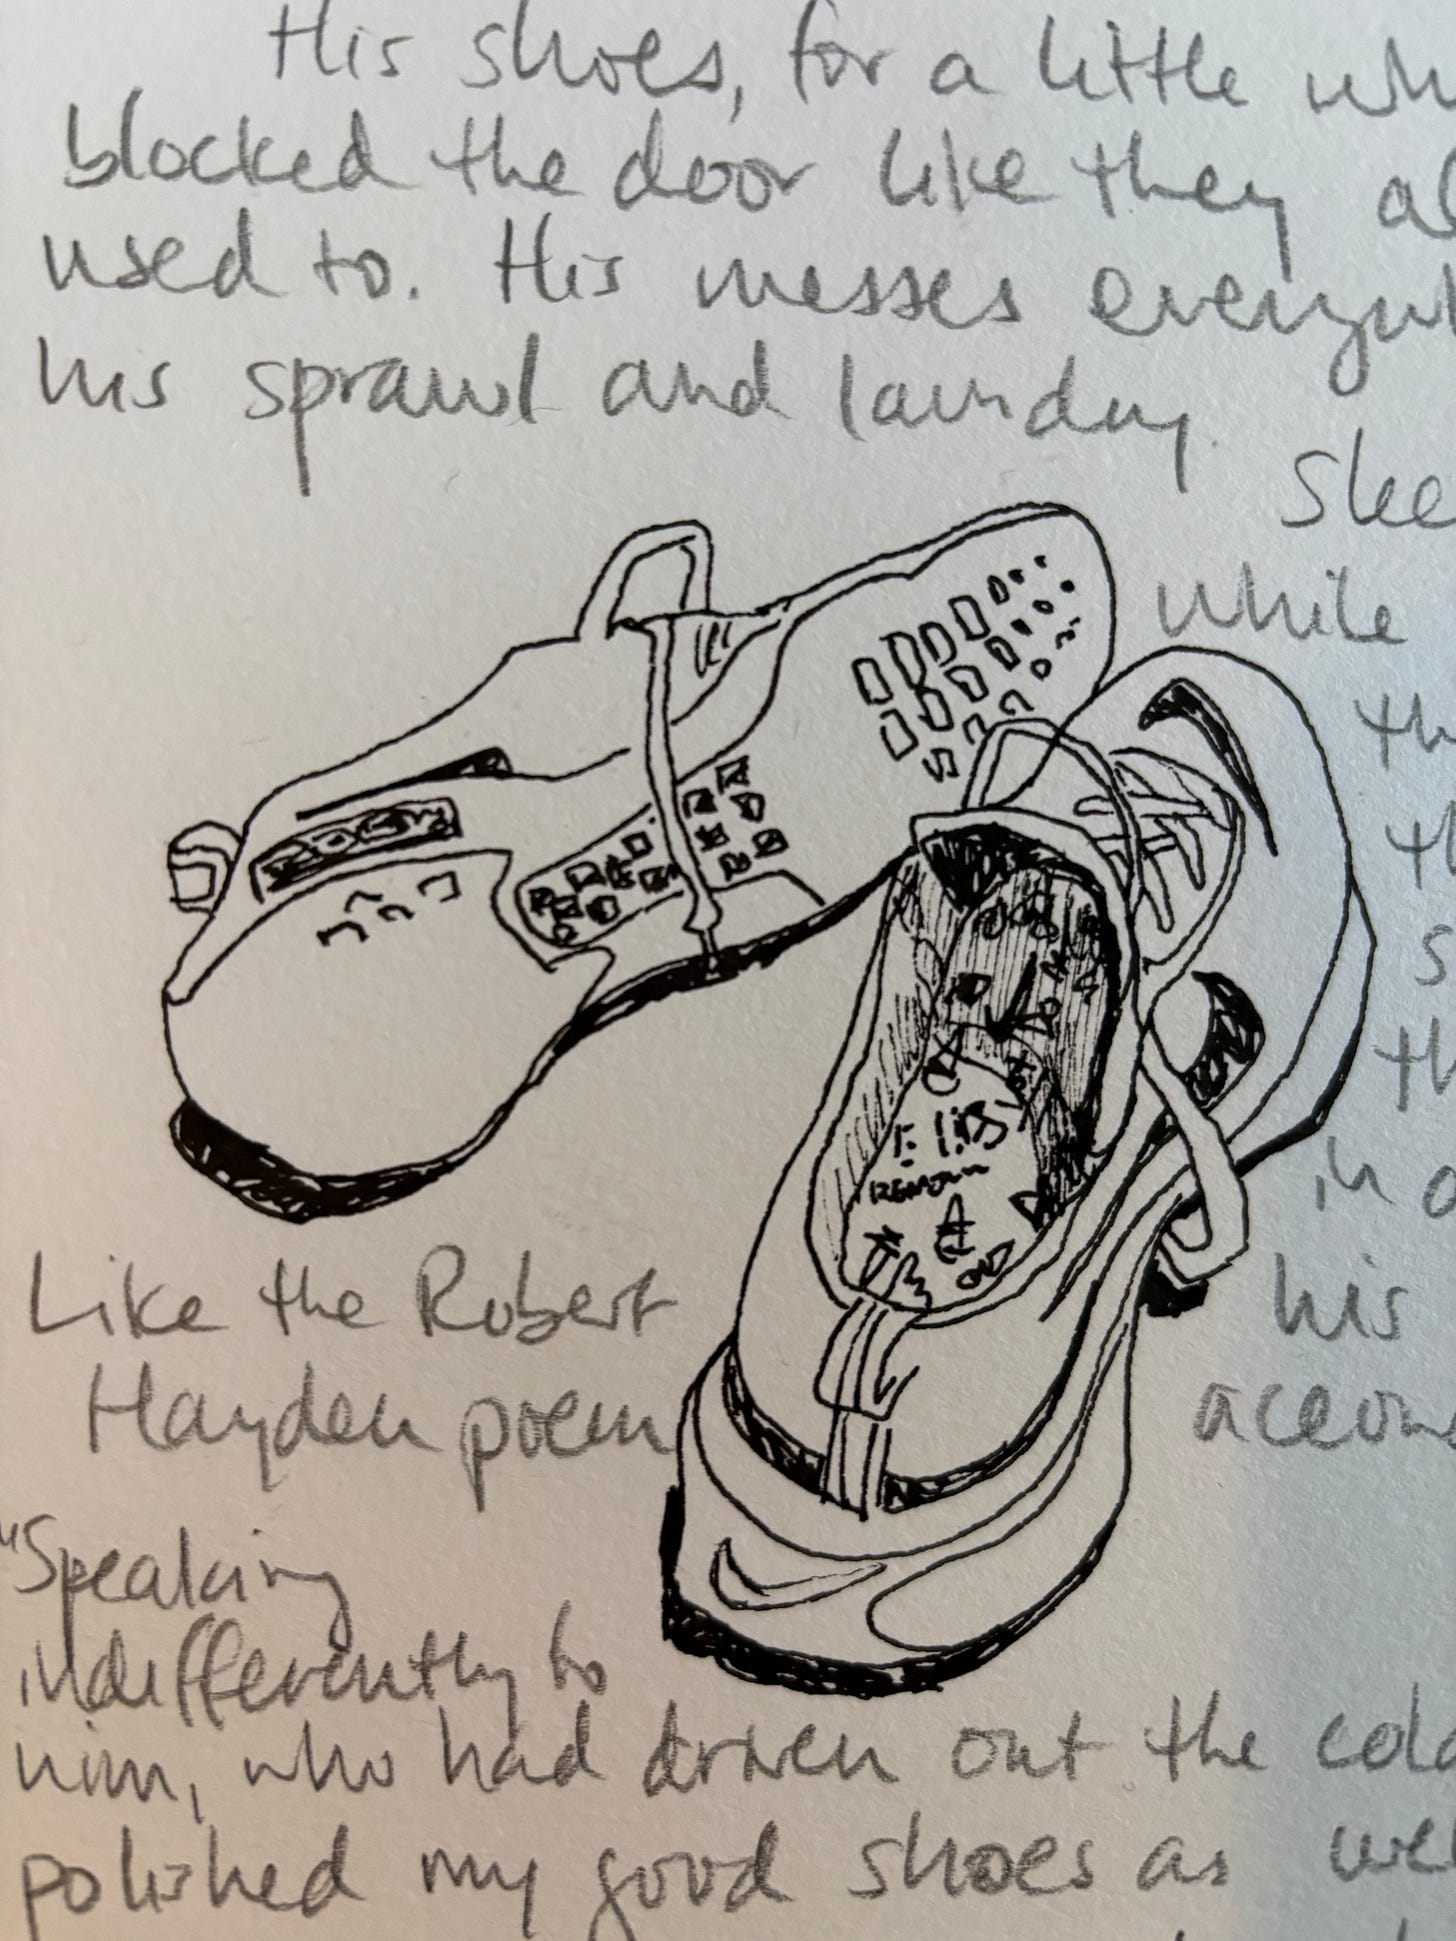 His shoes, for a little wh
blocked the door like they al
used to. His messes everywh
his sprawl and laundry.
Slee
while
th
th
s
th
in a
Like the Robert
his
Hayden poem
"Speaking
indifferently to
him, who had driven out the cold
polished my good shoes as wel